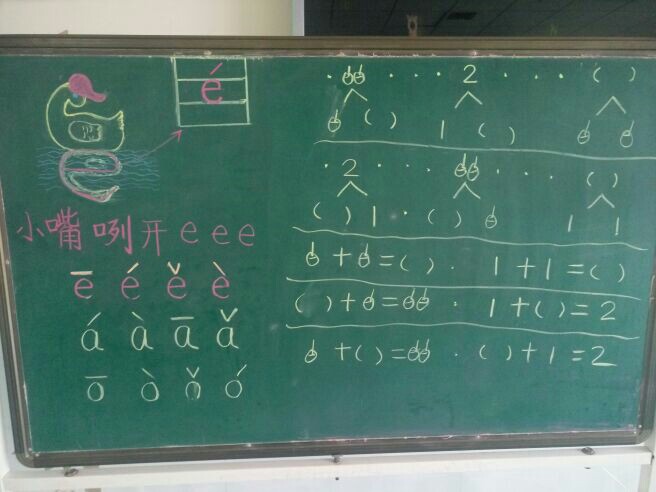 é
小嘴咧开 e e e
ē é ě è
á à ā ǎ
ō ò ǒ ó
· · · · 2 · · · ( )
( ) 1 ( )
· 2 · · · · · · ( )
( ) 1 · ( ) 1 1
+ = ( ) · 1 + 1 = ( )
( ) + = · 1 + ( ) = 2
+ ( ) = · ( ) + 1 = 2